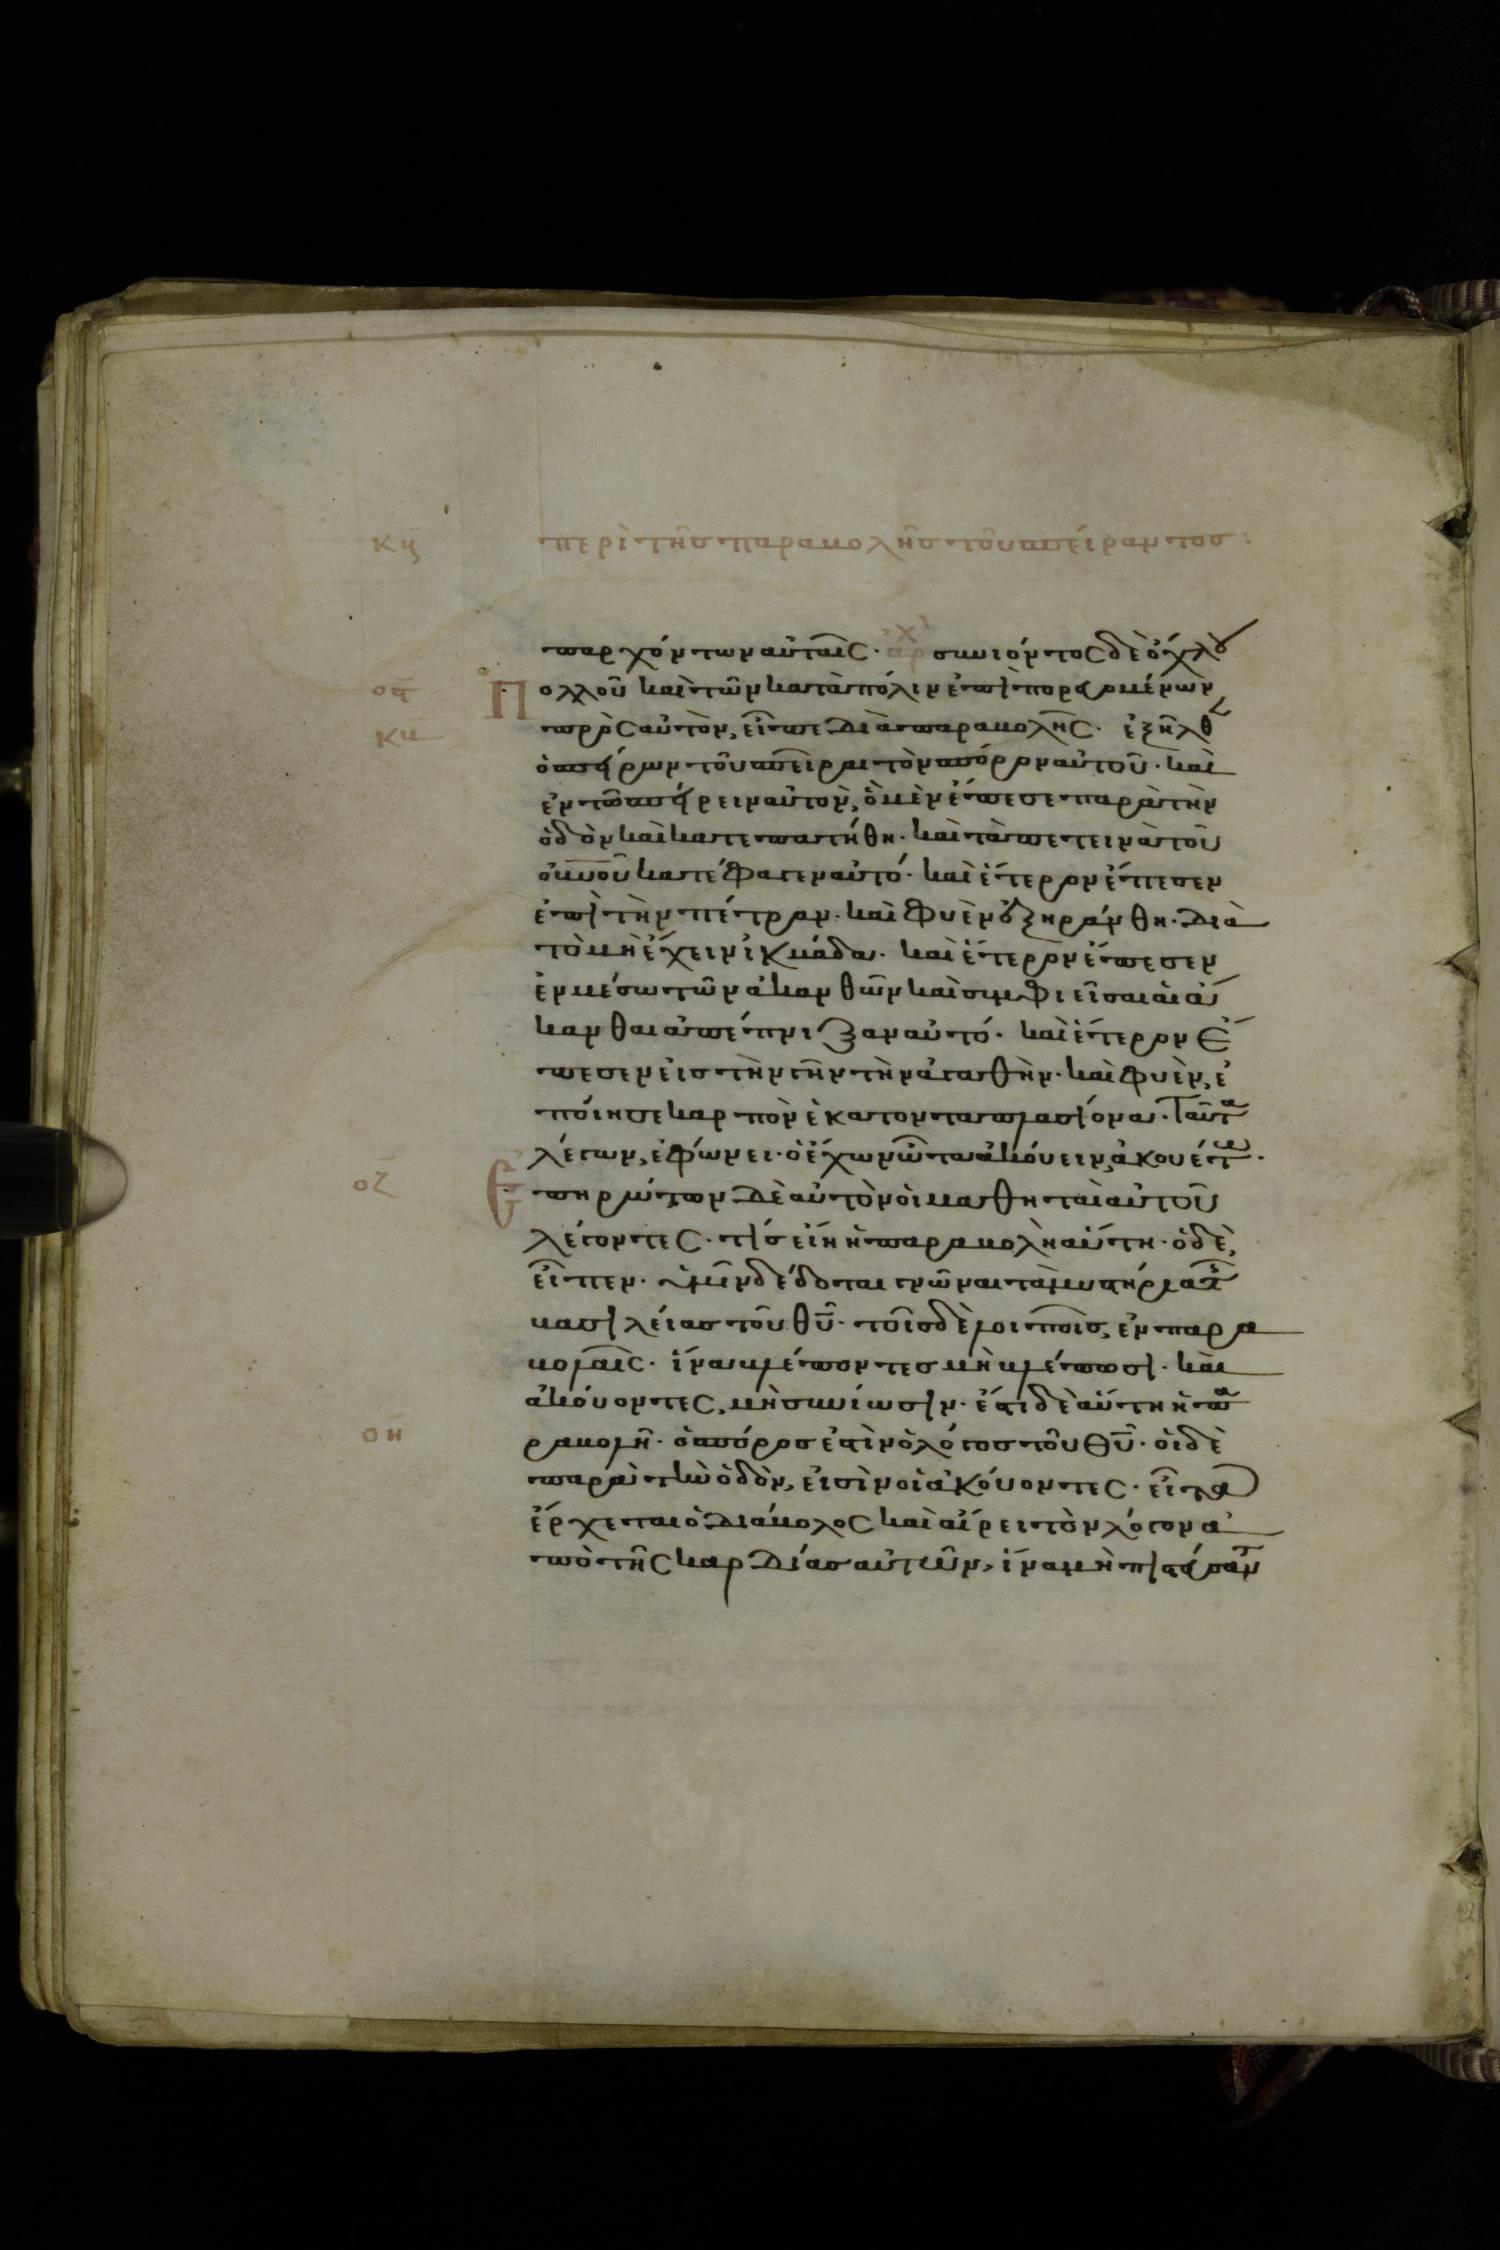 κϛ περὶ τῆς παραβολῆς τοῦ σπείραντος:
παρχόντων αὐταῖς· ἀρχὶ συνιόντος δὲ ὄχλου
οϛ Πολλοῦ καὶ τῶν κατὰ πόλιν ἐπιπορευομένων
κη πρὸς αὐτὸν, εἶπε διὰ παραβολῆς· ἐξῆλθ
ὁ σπείρων τοῦ σπεῖραι τὸν σπόρον αὐτοῦ· καὶ
ἐν τῶ σπείρειν αὐτὸν, ὃ μὲν ἔπεσε παρὰ τὴν
ὁδὸν καὶ κατεπατήθη· καὶ τὰ πετεινὰ τοῦ
οὐνοῦ κατέφαγεν αὐτό· καὶ ἕτερον ἔπεσεν
ἐπὶ τὴν πέτραν· καὶ φυὲν ἐξηράνθη· διὰ
τὸ μὴ ἔχειν ἰκμάδα· καὶ ἕτερον ἔπεσεν
ἐν μέσω τῶν ἀκανθῶν καὶ συμφυεῖσαι αἱ ἄ
κανθαι ἀπέπνιξαν αὐτό· καὶ ἕτερον ἔ
πεσεν εἰς τὴν γῆν τὴν ἀγαθὴν· καὶ φυὲν, ἐ
ποίησε καρπὸν ἑκατονταπλασίονα· Ταῦτα
λέγων, ἐφώνει· ὁ ἔχων ὦτα ἀκούειν, ἀκουέτω·
οζ Ἐπηρώτων δὲ αὐτὸν οἱ μαθηταὶ αὐτοῦ
λέγοντες· τίς εἴη ἡ παραβολὴ αὕτη· ὁ δὲ,
εἶπεν· ὑμῖν δέδοται γνῶναι τὰ μυστήρια τῆς
βασιλείας τοῦ θῦ· τοῖς δὲ λοιποῖς, ἐν παρα
βολαῖς· ἵνα βλέποντες μὴ βλέπωσι· καὶ
ἀκούοντες, μὴ συνίωσιν· ἔστι δὲ αὕτη ἡ πα
οη ραβολή· ὁ σπόρος ἐστὶν ὁ λόγος τοῦ Θῦ· οἱ δὲ
παρὰ τὴν ὁδὸν, εἰσὶν οἱ ἀκούοντες· εἶτα
ἔρχεται ὁ διάβολος καὶ αἴρει τὸν λόγον ἀ
πὸ τῆς καρδίας αὐτῶν, ἵνα μὴ πιστεύσαντ